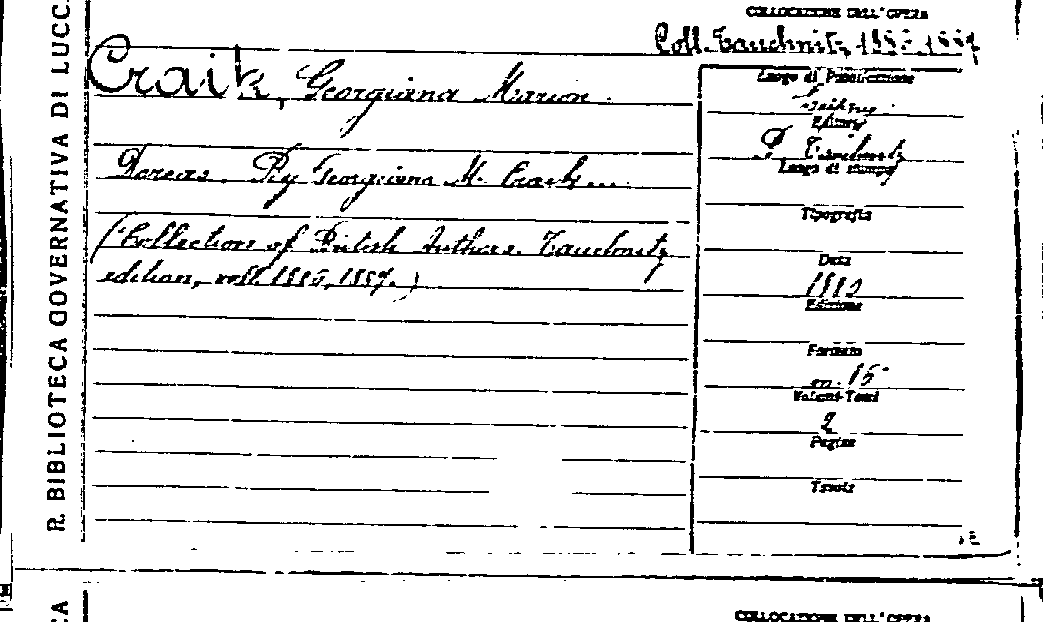 R. BIBLIOTECA GOVERNATIVA DI LUCC
COLLOCAZIONE DELL'OPERA
Coll. Tauchnitz
Craik, Georgiana Marion.
Dorcas. By Georgiana M. Craik...
(Collection of British Authors. Tauchnitz
edition, voll.
Luogo di Pubblicazione
Editore
B. Tauchnitz
Luogo di stampa
Tipografia
Data
Edizione
Formato
in-16°
Volumi-Tomi
2
Pagine
Tavole
CA
COLLOCAZIONE DELL'OPERA